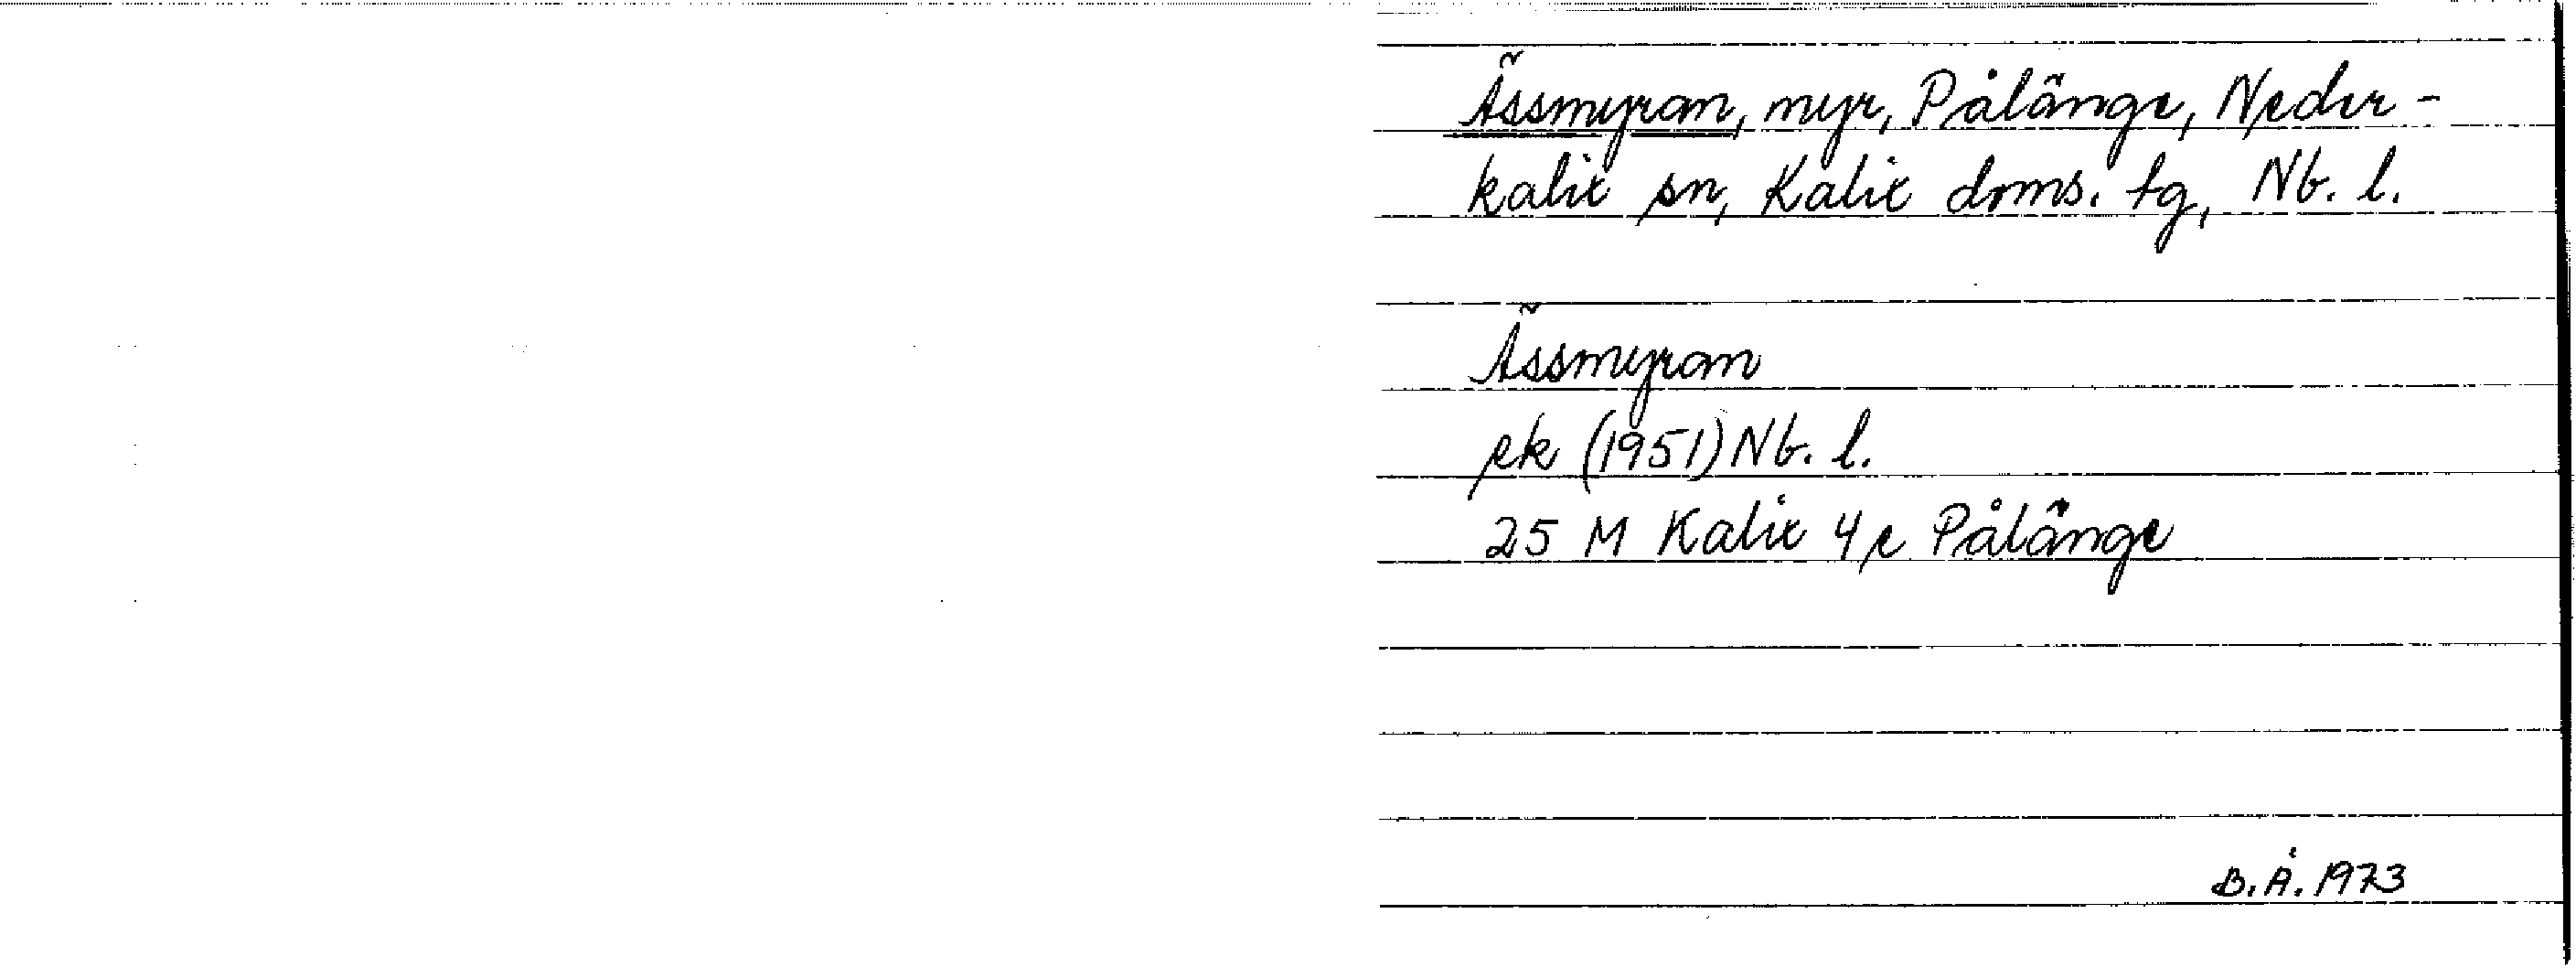 Ässmyran, myr, Pålänge, Neder-
kalix sn, Kalix doms. tg, Nb. l.
Ässmyran
ek (1951) Nb. l.
25 M Kalix 4 e Pålänge
B. Å. 1973